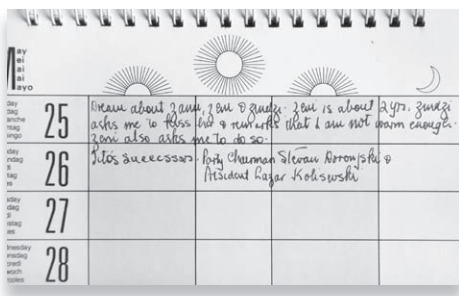 May
ei
ai
ai
ayo
25 Dream about Zami, Zeni & Zindzi. Zeni is about 2 yrs. Zindzi
asks me to kiss her & remarks that I am not warm enough.
Zeni also asks me to do so.
26 Tito's successors. Party Chairman Stevan Doronjski &
President Lazar Kolisevski
27
28